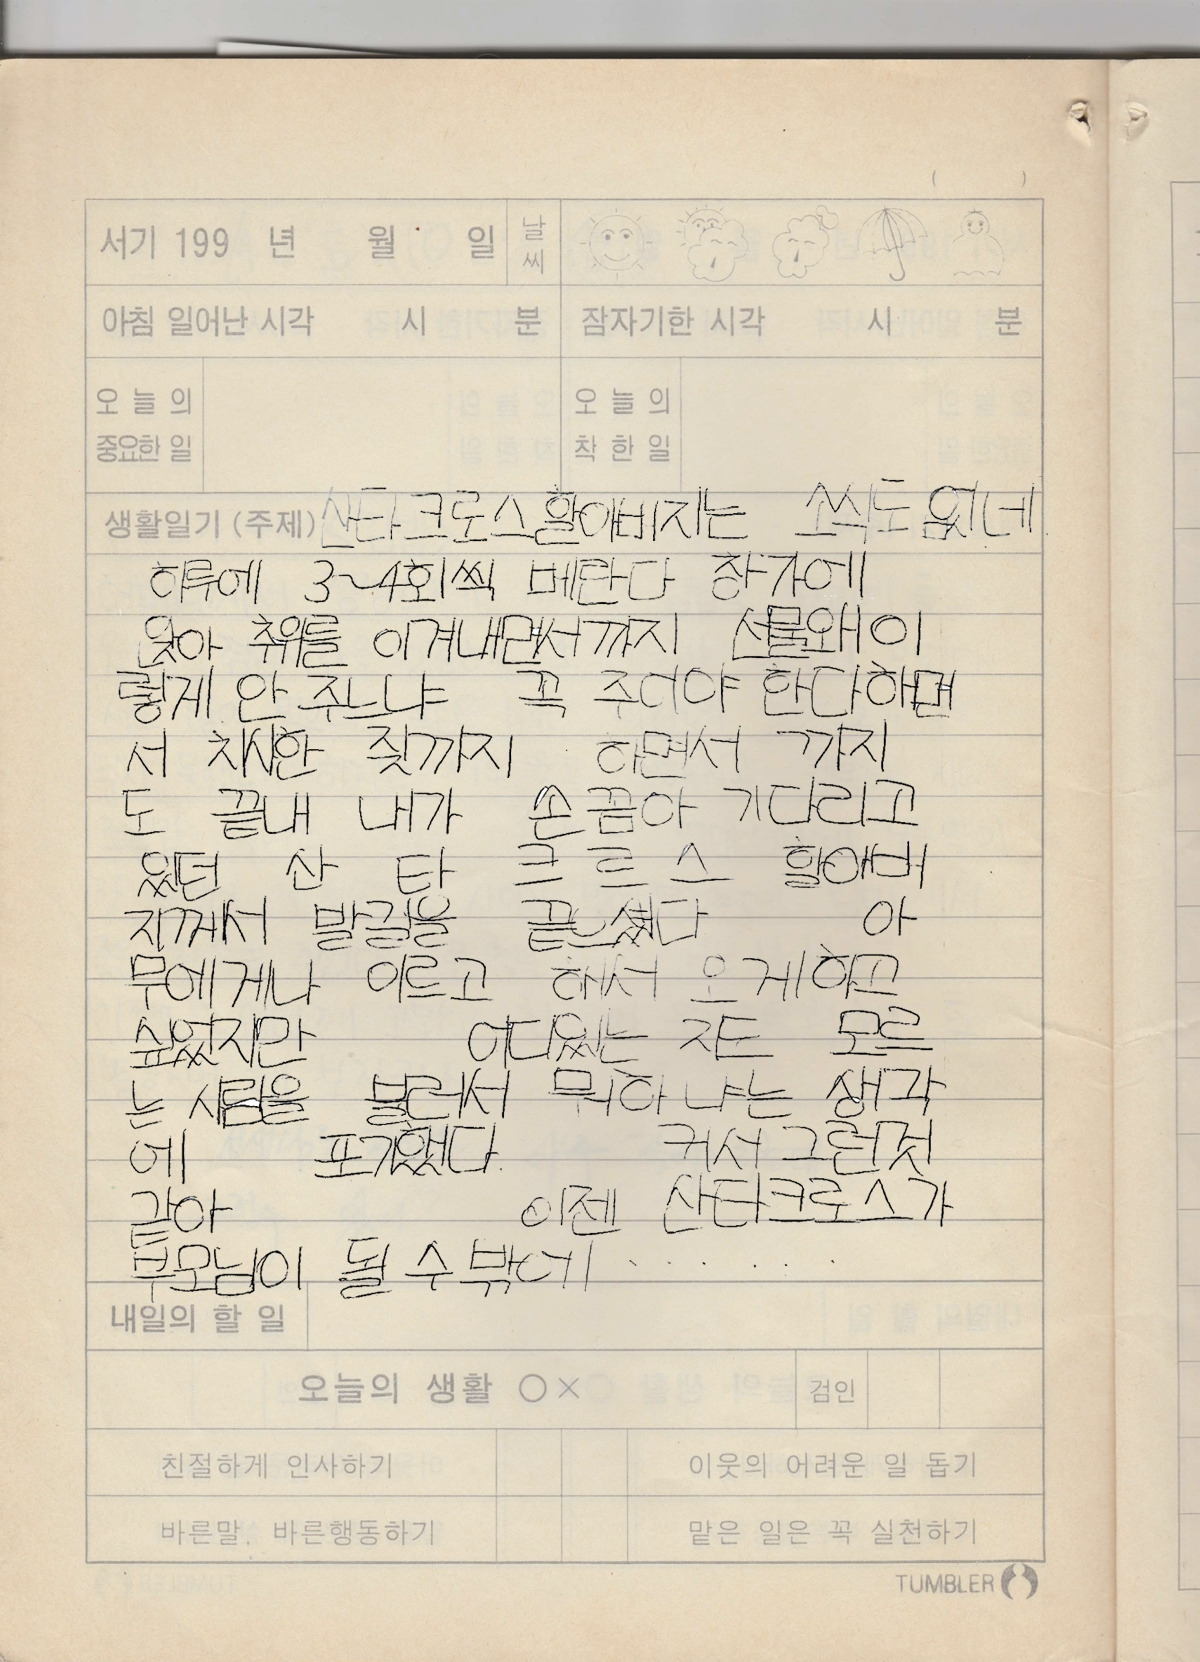 서기 199 년 월 일 날씨
아침 일어난 시각 시 분 잠자기한 시각 시 분
오늘의 중요한 일 오늘의 착한 일
생활일기 (주제) 산타크로스 할아버지는 소식도 없네
하루에 3~4회씩 베란다 창가에
앉아 추위를 이겨내면서까지 선물왜 이
렇게 안 주느냐 꼭 주어야 한다하면
서 치사한 짖까지 하면서 까지
도 끝내 내가 손꼽아 기다리고
있던 산 타 크 르 스 할아버
지께서 발길을 끝으셨다 아
무에게나 이르고 해서 오게하고
싶었지만 어디있는 지도 모르
는 사람을 불러서 뭐하냐는 생각
에 포기했다. 커서 그런것
같아 이젠 산타크로스가
부모님이 될 수 밖에 ........
내일의 할 일
오늘의 생활 ○× 검인
친절하게 인사하기 이웃의 어려운 일 돕기
바른말, 바른행동하기 맡은 일은 꼭 실천하기
TUMBLER